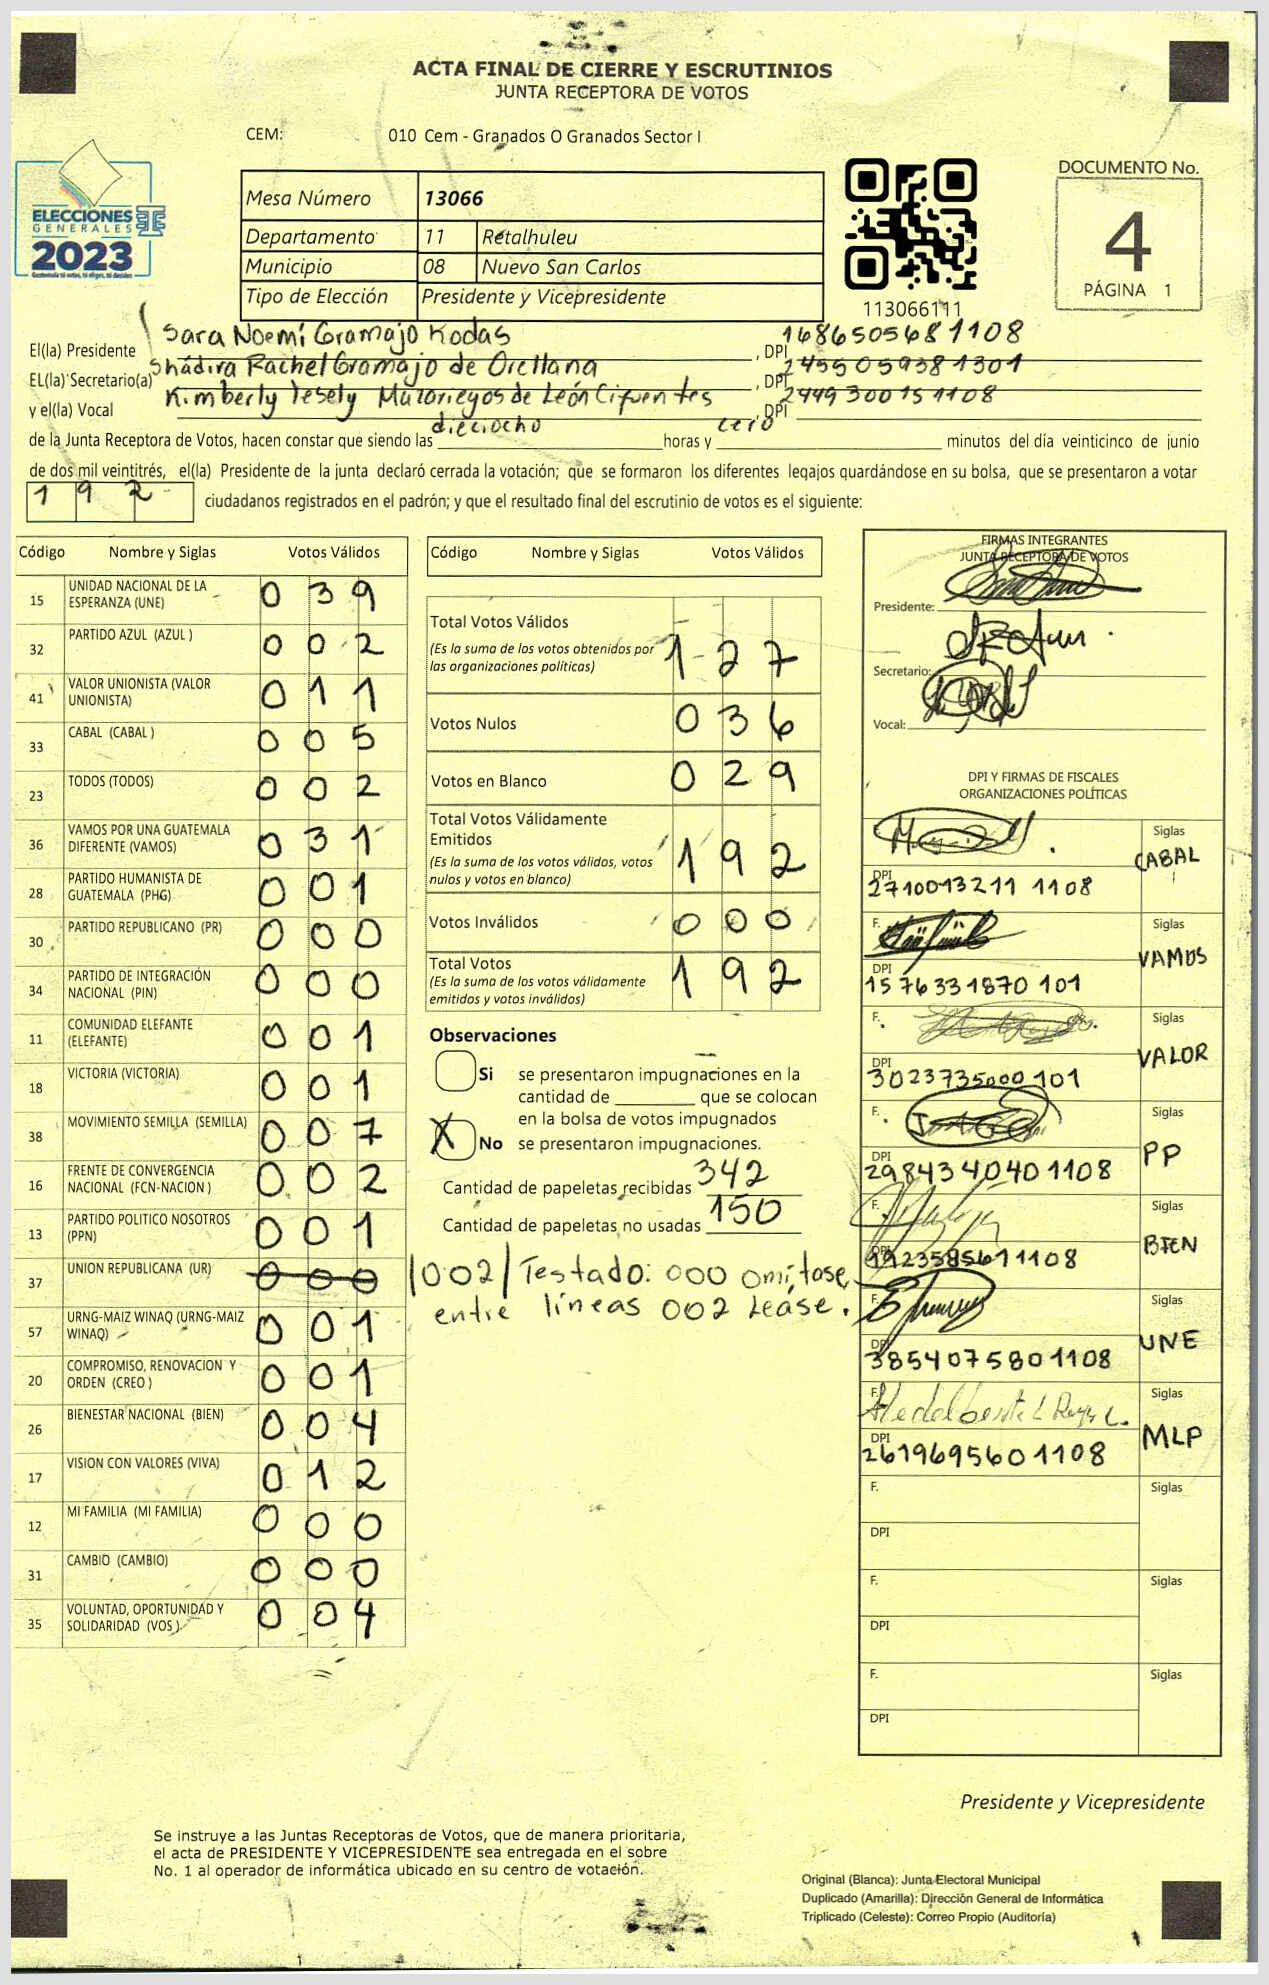 ACTA FINAL DE CIERRE Y ESCRUTINIOS
JUNTA RECEPTORA DE VOTOS
CEM: 010 Cem - Granados O Granados Sector I
ELECCIONES
GENERALES
2023
Guatemala tú votas, tú eliges, tú decides
Mesa Número 13066
Departamento 11 Retalhuleu
Municipio 08 Nuevo San Carlos
Tipo de Elección Presidente y Vicepresidente
113066111
DOCUMENTO No.
4
PÁGINA 1
El(la) Presidente Sara Noemí Gramajo Rodas, DPI 1686505681108
EL(la) Secretario(a) Shadira Rachel Gramajo de Orellana, DPI 2455059381301
y el(la) Vocal Kimberly Yesely Mazariegos de León Cifuentes, DPI 2449300151108
de la Junta Receptora de Votos, hacen constar que siendo las dieciocho horas y cero minutos del día veinticinco de junio
de dos mil veintitrés, el(la) Presidente de la junta declaró cerrada la votación; que se formaron los diferentes legajos guardándose en su bolsa, que se presentaron a votar
192 ciudadanos registrados en el padrón; y que el resultado final del escrutinio de votos es el siguiente:
Código Nombre y Siglas Votos Válidos
15 UNIDAD NACIONAL DE LA ESPERANZA (UNE) 039
32 PARTIDO AZUL (AZUL ) 002
41 VALOR UNIONISTA (VALOR UNIONISTA) 011
33 CABAL (CABAL ) 005
23 TODOS (TODOS) 002
36 VAMOS POR UNA GUATEMALA DIFERENTE (VAMOS) 031
28 PARTIDO HUMANISTA DE GUATEMALA (PHG) 001
30 PARTIDO REPUBLICANO (PR) 000
34 PARTIDO DE INTEGRACIÓN NACIONAL (PIN) 000
11 COMUNIDAD ELEFANTE (ELEFANTE) 001
18 VICTORIA (VICTORIA) 001
38 MOVIMIENTO SEMILLA (SEMILLA) 007
16 FRENTE DE CONVERGENCIA NACIONAL (FCN-NACION ) 002
13 PARTIDO POLITICO NOSOTROS (PPN) 001
37 UNION REPUBLICANA (UR) 000 /002/ Testado: 000 omítase,
entre líneas 002 Léase.
57 URNG-MAIZ WINAQ (URNG-MAIZ WINAQ) 001
20 COMPROMISO, RENOVACION Y ORDEN (CREO ) 001
26 BIENESTAR NACIONAL (BIEN) 004
17 VISION CON VALORES (VIVA) 012
12 MI FAMILIA (MI FAMILIA) 000
31 CAMBIO (CAMBIO) 000
35 VOLUNTAD, OPORTUNIDAD Y SOLIDARIDAD (VOS ) 004
Código Nombre y Siglas Votos Válidos
Total Votos Válidos 127
(Es la suma de los votos obtenidos por
las organizaciones políticas)
Votos Nulos 036
Votos en Blanco 029
Total Votos Válidamente
Emitidos 192
(Es la suma de los votos válidos, votos
nulos y votos en blanco)
Votos Inválidos 000
Total Votos 192
(Es la suma de los votos válidamente
emitidos y votos inválidos)
Observaciones
Si se presentaron impugnaciones en la
cantidad de ________ que se colocan
en la bolsa de votos impugnados
X No se presentaron impugnaciones.
Cantidad de papeletas recibidas 342
Cantidad de papeletas no usadas 150
FIRMAS INTEGRANTES
JUNTA RECEPTORA DE VOTOS
Presidente:
Secretario:
Vocal:
DPI Y FIRMAS DE FISCALES
ORGANIZACIONES POLÍTICAS
Siglas CABAL
DPI 2710013211 1108
F. Siglas VAMOS
DPI 1576331870 101
F. Siglas VALOR
DPI 3023735000 101
F. Siglas PP
DPI 2984340401108
F. Siglas BIEN
DPI 1923585671108
F. Siglas UNE
DPI 3854075801108
F. Siglas MLP
DPI 2619695601108
F. Siglas
DPI
F. Siglas
DPI
F. Siglas
DPI
Presidente y Vicepresidente
Se instruye a las Juntas Receptoras de Votos, que de manera prioritaria,
el acta de PRESIDENTE Y VICEPRESIDENTE sea entregada en el sobre
No. 1 al operador de informática ubicado en su centro de votación.
Original (Blanca): Junta Electoral Municipal
Duplicado (Amarilla): Dirección General de Informática
Triplicado (Celeste): Correo Propio (Auditoría)